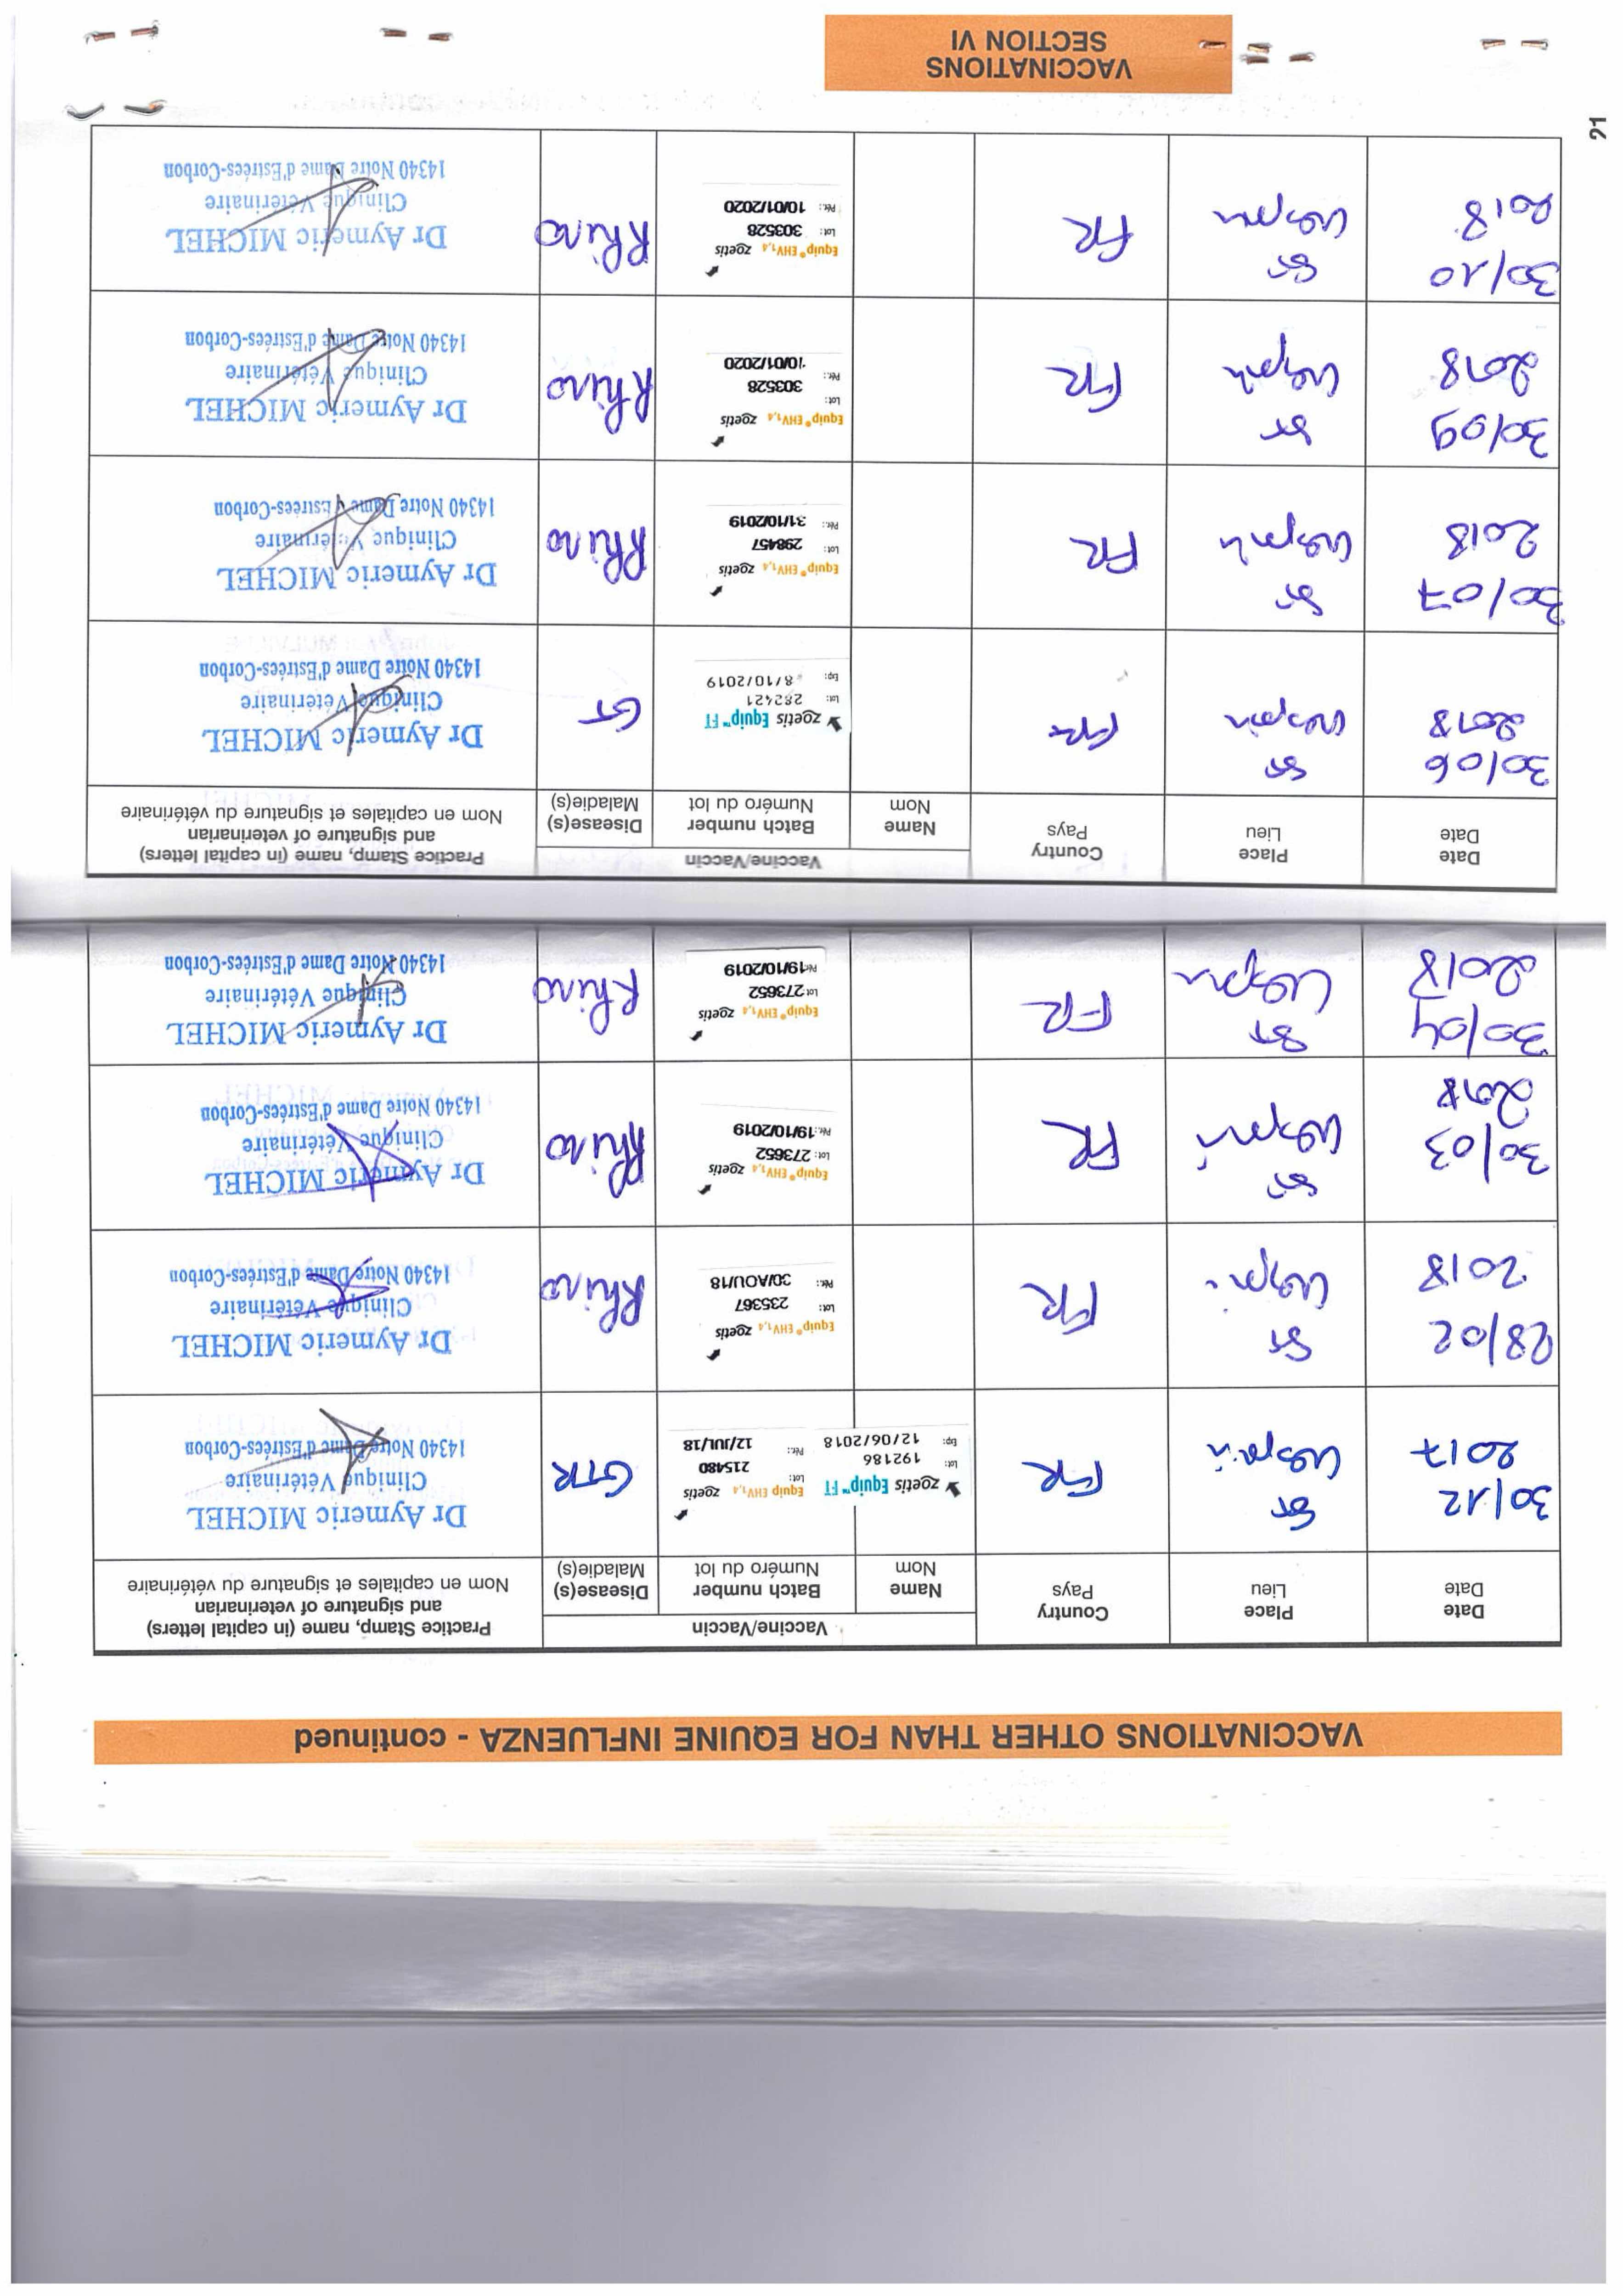 VACCINATIONS OTHER THAN FOR EQUINE INFLUENZA - continued
Date
Date
Place
Lieu
Country
Pays
Vaccine/Vaccin
Name
Nom
Batch number
Numéro du lot
Disease(s)
Maladie(s)
Practice Stamp, name (in capital letters)
and signature of veterinarian
Nom en capitales et signature du vétérinaire
30/12
2017
St
FR
zoetis Equip™ FT
Lot: 192186
Exp: 12/06/2018
Equip EHV1,4 zoetis
Lot: 215480
Pér.: 12/JUL/18
GTR
Dr Aymeric MICHEL
Clinique Vétérinaire
14340 Notre Dame d'Estrées-Corbon
28/02
2018
St
FR
Equip® EHV1,4 zoetis
Lot: 235367
Pér.: 30/AOU/18
Rhino
Dr Aymeric MICHEL
Clinique Vétérinaire
14340 Notre Dame d'Estrées-Corbon
30/03
2018
St
FR
Equip® EHV1,4 zoetis
Lot: 273652
Pér.: 19/10/2019
Rhino
Dr Aymeric MICHEL
Clinique Vétérinaire
14340 Notre Dame d'Estrées-Corbon
30/04
2018
St
FR
Equip® EHV1,4 zoetis
Lot 273652
Pér.: 19/10/2019
Rhino
Dr Aymeric MICHEL
Clinique Vétérinaire
14340 Notre Dame d'Estrées-Corbon
Date
Date
Place
Lieu
Country
Pays
Vaccine/Vaccin
Name
Nom
Batch number
Numéro du lot
Disease(s)
Maladie(s)
Practice Stamp, name (in capital letters)
and signature of veterinarian
Nom en capitales et signature du vétérinaire
30/06
2018
St
FR
zoetis Equip™ FT
Lot: 282421
Exp: 8/10/2019
GT
Dr Aymeric MICHEL
Clinique Vétérinaire
14340 Notre Dame d'Estrées-Corbon
30/07
2018
St
FR
Equip® EHV1,4 zoetis
Lot: 298457
Pér.: 31/10/2019
Rhino
Dr Aymeric MICHEL
Clinique Vétérinaire
14340 Notre Dame d'Estrées-Corbon
30/09
2018
St
FR
Equip® EHV1,4 zoetis
Lot: 303528
Pér.: 10/01/2020
Rhino
Dr Aymeric MICHEL
Clinique Vétérinaire
14340 Notre Dame d'Estrées-Corbon
30/10
2018
St
FR
Equip® EHV1,4 zoetis
Lot: 303528
Pér.: 10/01/2020
Rhino
Dr Aymeric MICHEL
Clinique Vétérinaire
14340 Notre Dame d'Estrées-Corbon
21
VACCINATIONS
SECTION VI